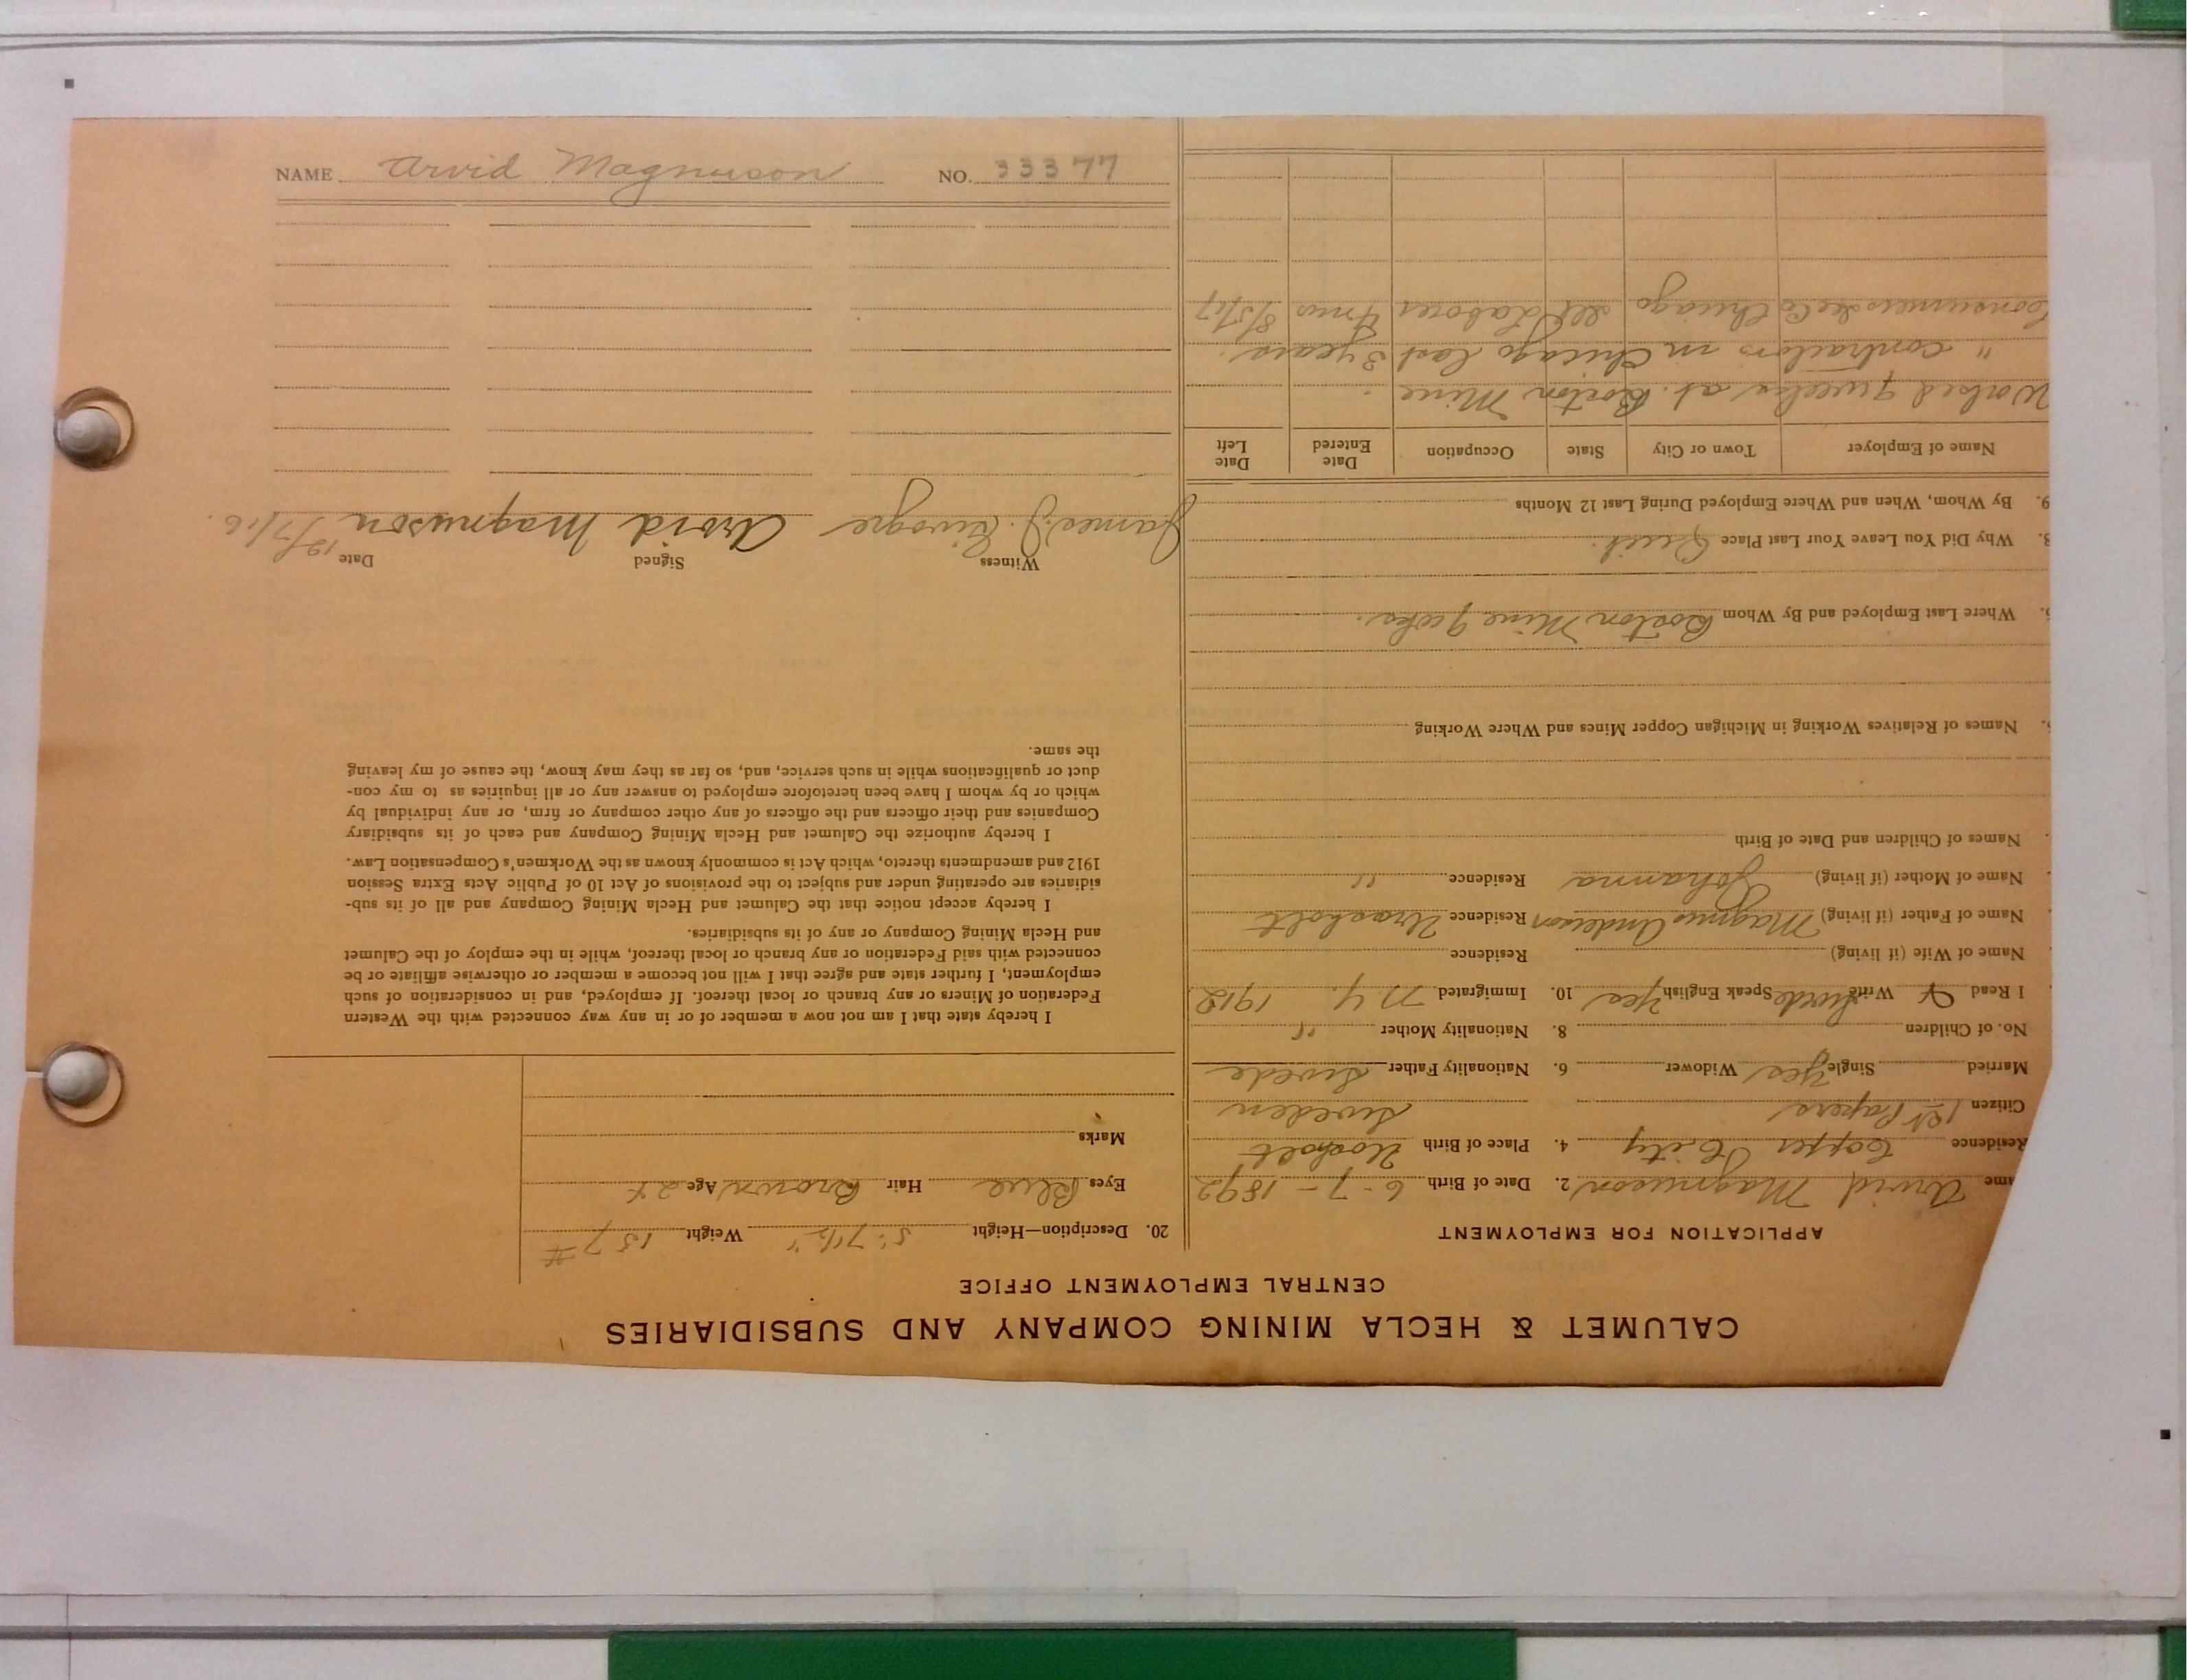 CALUMET & HECLA MINING COMPANY AND SUBSIDIARIES
CENTRAL EMPLOYMENT OFFICE
APPLICATION FOR EMPLOYMENT
ame Arvid Magnuson 2. Date of Birth 6-7-1892
Residence Copper City 4. Place of Birth
Citizen 1st Papers Sweden
Married Single Yes Widower 6. Nationality Father Swede
No. of Children 8. Nationality Mother "
I Read & Write Swede Speak English Yes 10. Immigrated N.Y. 1912
Name of Wife (if living) Residence
Name of Father (if living) Magnus Anderson Residence
Name of Mother (if living) Johanna Residence "
Names of Children and Date of Birth
Names of Relatives Working in Michigan Copper Mines and Where Working
Where Last Employed and By Whom Boston Mine
Why Did You Leave Your Last Place Quit.
9. By Whom, When and Where Employed During Last 12 Months
Name of Employer Town or City State Occupation Date Entered Date Left
Worked weeks at Boston Mine.
" contractors in Chicago last 3 years.
Consumers Chicago Ill Laborer
20. Description—Height 5' 7 1/2" Weight 157 #
Eyes Blue Hair Brown Age 24
Marks
I hereby state that I am not now a member of or in any way connected with the Western
Federation of Miners or any branch or local thereof. If employed, and in consideration of such
employment, I further state and agree that I will not become a member or otherwise affiliate or be
connected with said Federation or any branch or local thereof, while in the employ of the Calumet
and Hecla Mining Company or any of its subsidiaries.
I hereby accept notice that the Calumet and Hecla Mining Company and all of its sub-
sidiaries are operating under and subject to the provisions of Act 10 of Public Acts Extra Session
1912 and amendments thereto, which Act is commonly known as the Workmen's Compensation Law.
I hereby authorize the Calumet and Hecla Mining Company and each of its subsidiary
Companies and their officers and the officers of any other company or firm, or any individual by
which or by whom I have been heretofore employed to answer any or all inquiries as to my con-
duct or qualifications while in such service, and, so far as they may know, the cause of my leaving
the same.
Witness Signed Date
James J. Arvid Magnuson 12/7/16.
NAME Arvid Magnuson NO. 33377